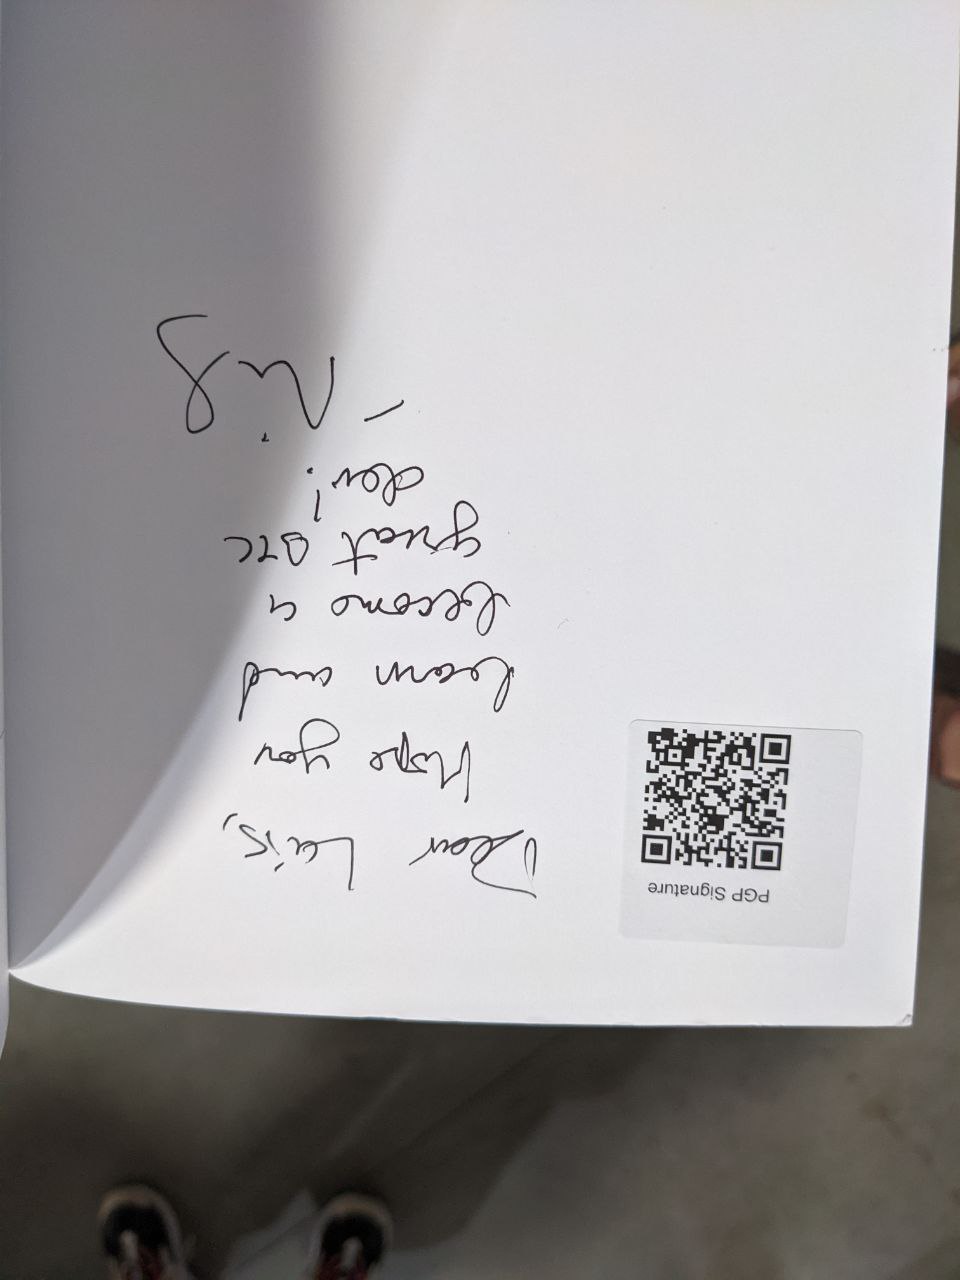 PGP Signature
Dear Luis,
Hope you
learn and
become a
great BTC
dev!